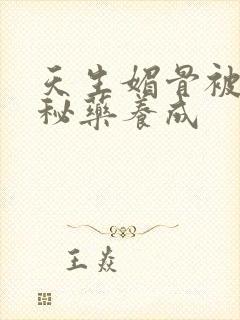 天生媚骨被
秘藥養成
王焱